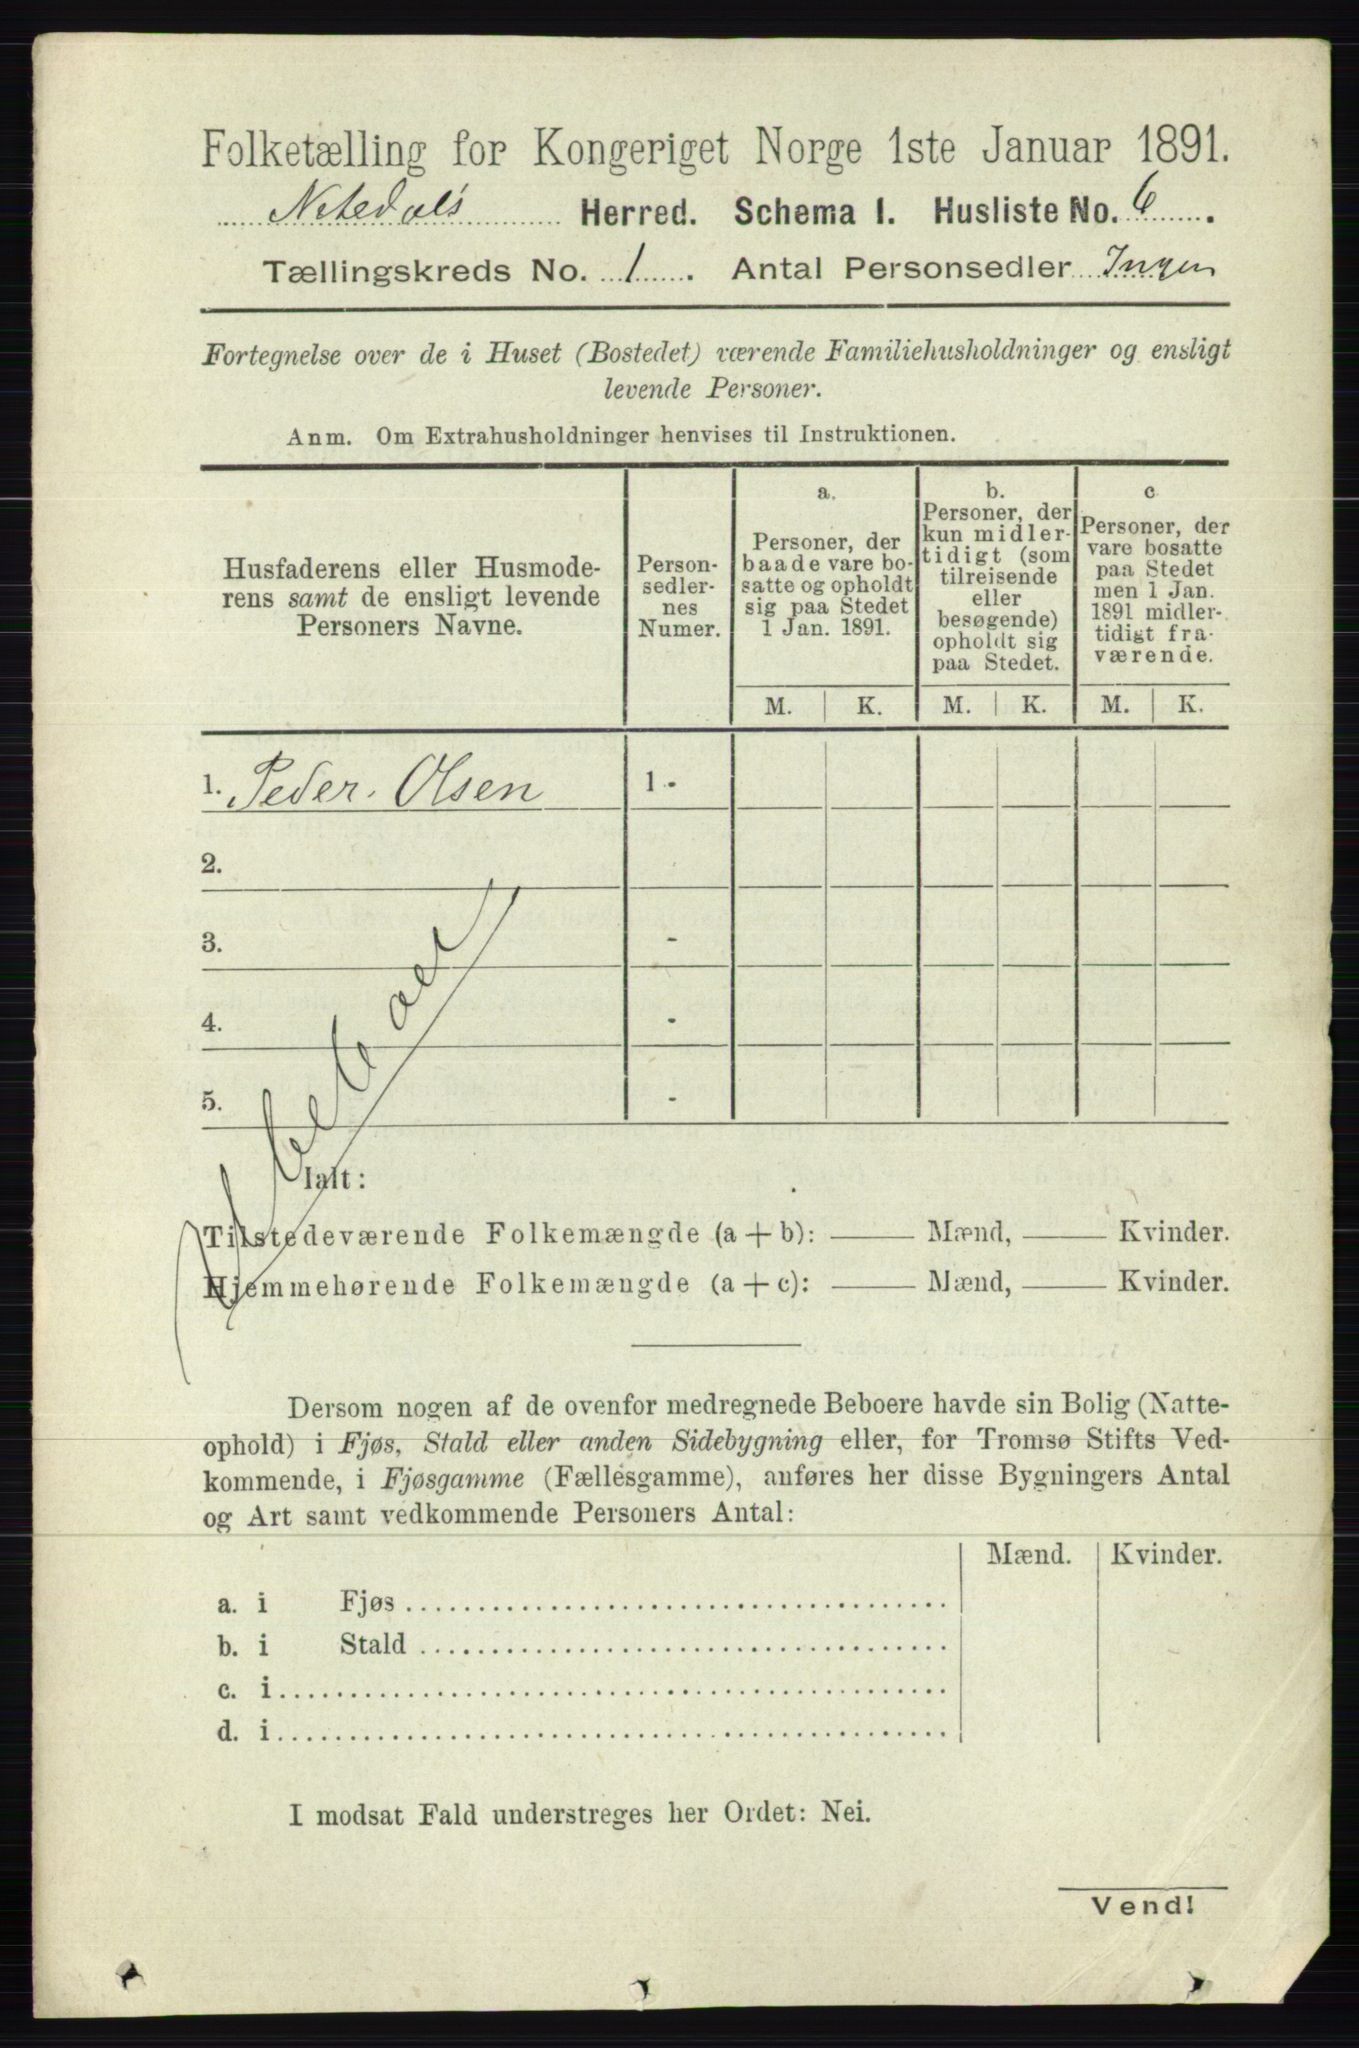 Folketælling for Kongeriget Norge 1ste Januar 1891.
Nitedals Herred. Schema I. Husliste No. 6.
Tællingskreds No. 1. Antal Personsedler Ingen
Fortegnelse over de i Huset (Bostedet) værende Familiehusholdninger og ensligt
levende Personer.
Anm. Om Extrahusholdninger henvises til Instruktionen.
Husfaderens eller Husmode-
rens samt de ensligt levende
Personers Navne.
Person-
sedler-
nes
Numer.
a.
Personer, der
baade vare bo-
satte og opholdt
sig paa Stedet
1 Jan. 1891.
b.
Personer, der
kun midler-
tidigt (som
tilreisende
eller
besøgende)
opholdt sig
paa Stedet.
c
Personer, der
vare bosatte
paa Stedet
men 1 Jan.
1891 midler-
tidigt fra-
værende.
M. K. M. K. M. K.
1. Peder Olsen 1 -
2.
3. -
4. -
5. -
Ialt:
Tilstedeværende Folkemængde (a + b): — Mænd, — Kvinder.
Hjemmehørende Folkemængde (a + c): — Mænd, — Kvinder.
Dersom nogen af de ovenfor medregnede Beboere havde sin Bolig (Natte-
ophold) i Fjøs, Stald eller anden Sidebygning eller, for Tromsø Stifts Ved-
kommende, i Fjøsgamme (Fællesgamme), anføres her disse Bygningers Antal
og Art samt vedkommende Personers Antal:
Mænd. Kvinder.
a. i Fjøs
b. i Stald
c. i
d. i
I modsat Fald understreges her Ordet: Nei.
Vend!